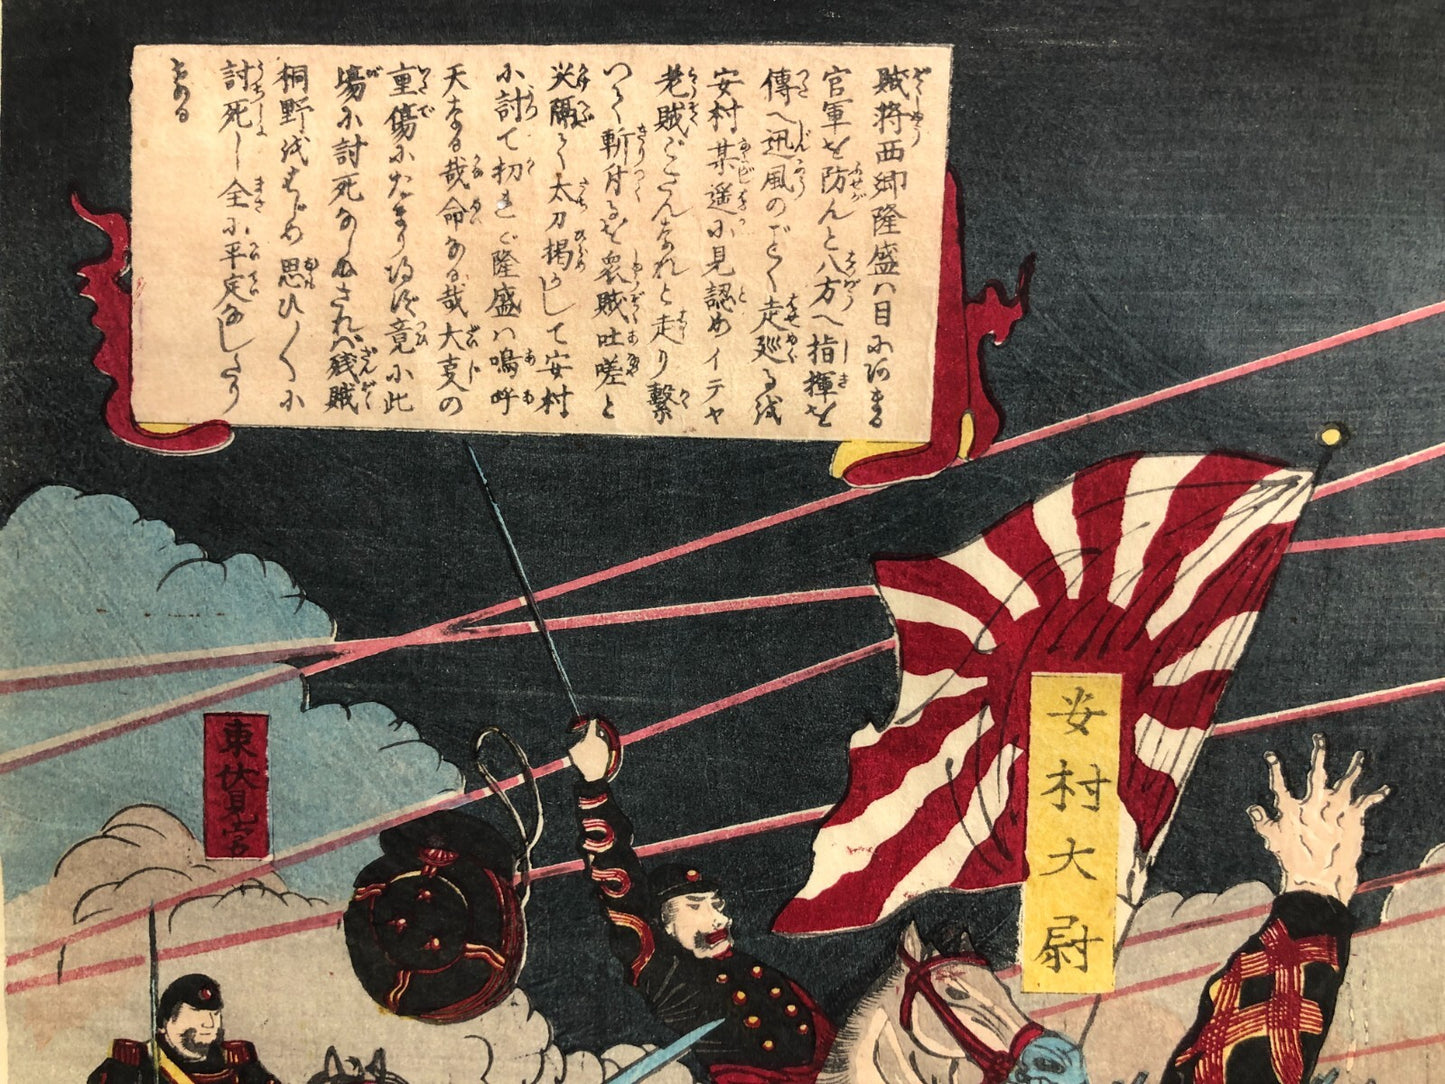 賊将西郷隆盛ハ目にあまる
官軍を防んと八方へ指揮を
傳へ迅風のごとく走廻るを
安村某遥に見認めイデヤ
老賊ごさんなれと走り繋
つゝ斬付るを衆賊吐嗟と
火隔て太刀揚かして安村
に討て初れど隆盛ハ嗚呼
天なる哉命なる哉大事の
重傷にたまりあへず竟に此
場に討死なしぬされバ残賊
桐野をはじめ思ひ／＼に
討死し全に平定なしたり
ける
安村大尉
東伏見宮